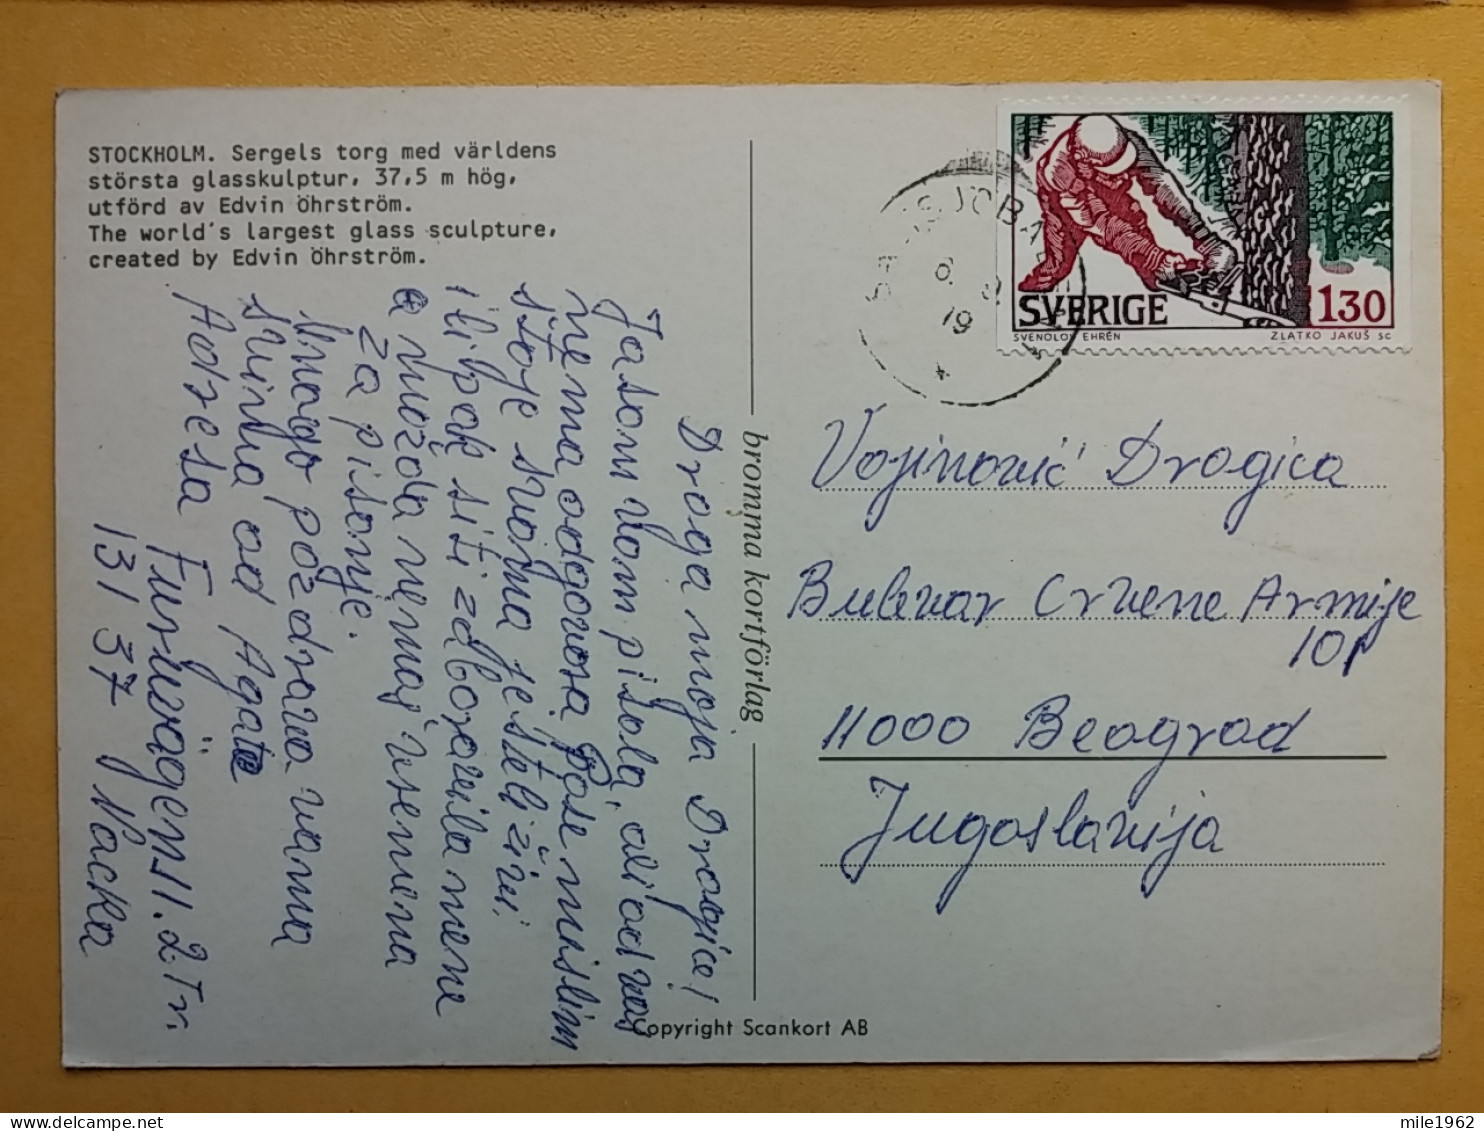 STOCKHOLM. Sergels torg med världens
största glasskulptur, 37,5 m hög,
utförd av Edvin Öhrström.
The world's largest glass sculpture,
created by Edvin Öhrström.
Draga moja Dragice!
Jasam vam pisala, ali od vas
nema odgovora Bože mislim
štoje svama jesteli živi
ili pak siti zaboravila mene
a možda nemaš vremena
za pisanje.
Mnogo pozdrava vama
svima od Agate
Adresa Furuvägens 1. 2 Tr.
131 37 Nacka
bromma kortförlag
Copyright Scankort AB
SVERIGE 1.30
SVENOLOV EHRÉN ZLATKO JAKUŠ SC
19
Vojinović Dragica
Bulevar Crvene Armije
101
11000 Beograd
Jugoslavija
mile1962